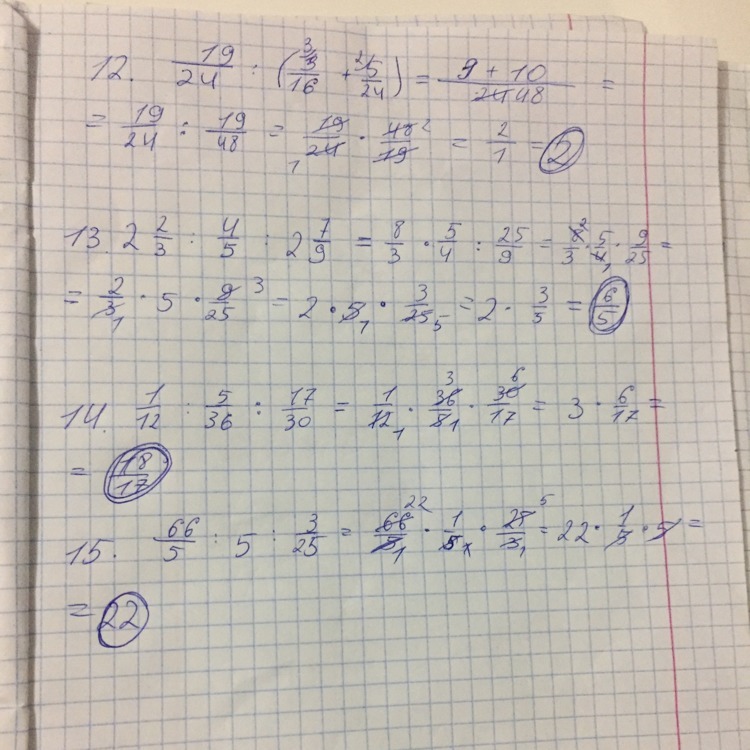 12. 19/24 : (3/16 ³ + 5/24 ²) = 9 + 10/48 =
= 19/24 : 19/48 = 19/24 ₁ · 48/19 ² = 2/1 = 2
13. 2 2/3 : 4/5 : 2 7/9 = 8/3 · 5/4 : 25/9 = 8/3 ² · 5/4 ₁ · 9/25 =
= 2/3 ₁ · 5 · 9/25 ³ = 2 · 5 ₁ · 3/25 ₅ = 2 · 3/5 = 6/5
14. 1/12 : 5/36 : 17/30 = 1/12 ₁ · 36/5 ³ ₁ · 30/17 ⁶ = 3 · 6/17 =
= 18/17
15. 66/5 : 5 : 3/25 = 66/5 ²² ₁ · 1/5 · 25/3 ⁵ ₁ = 22 · 1/5 · 5 =
= 22